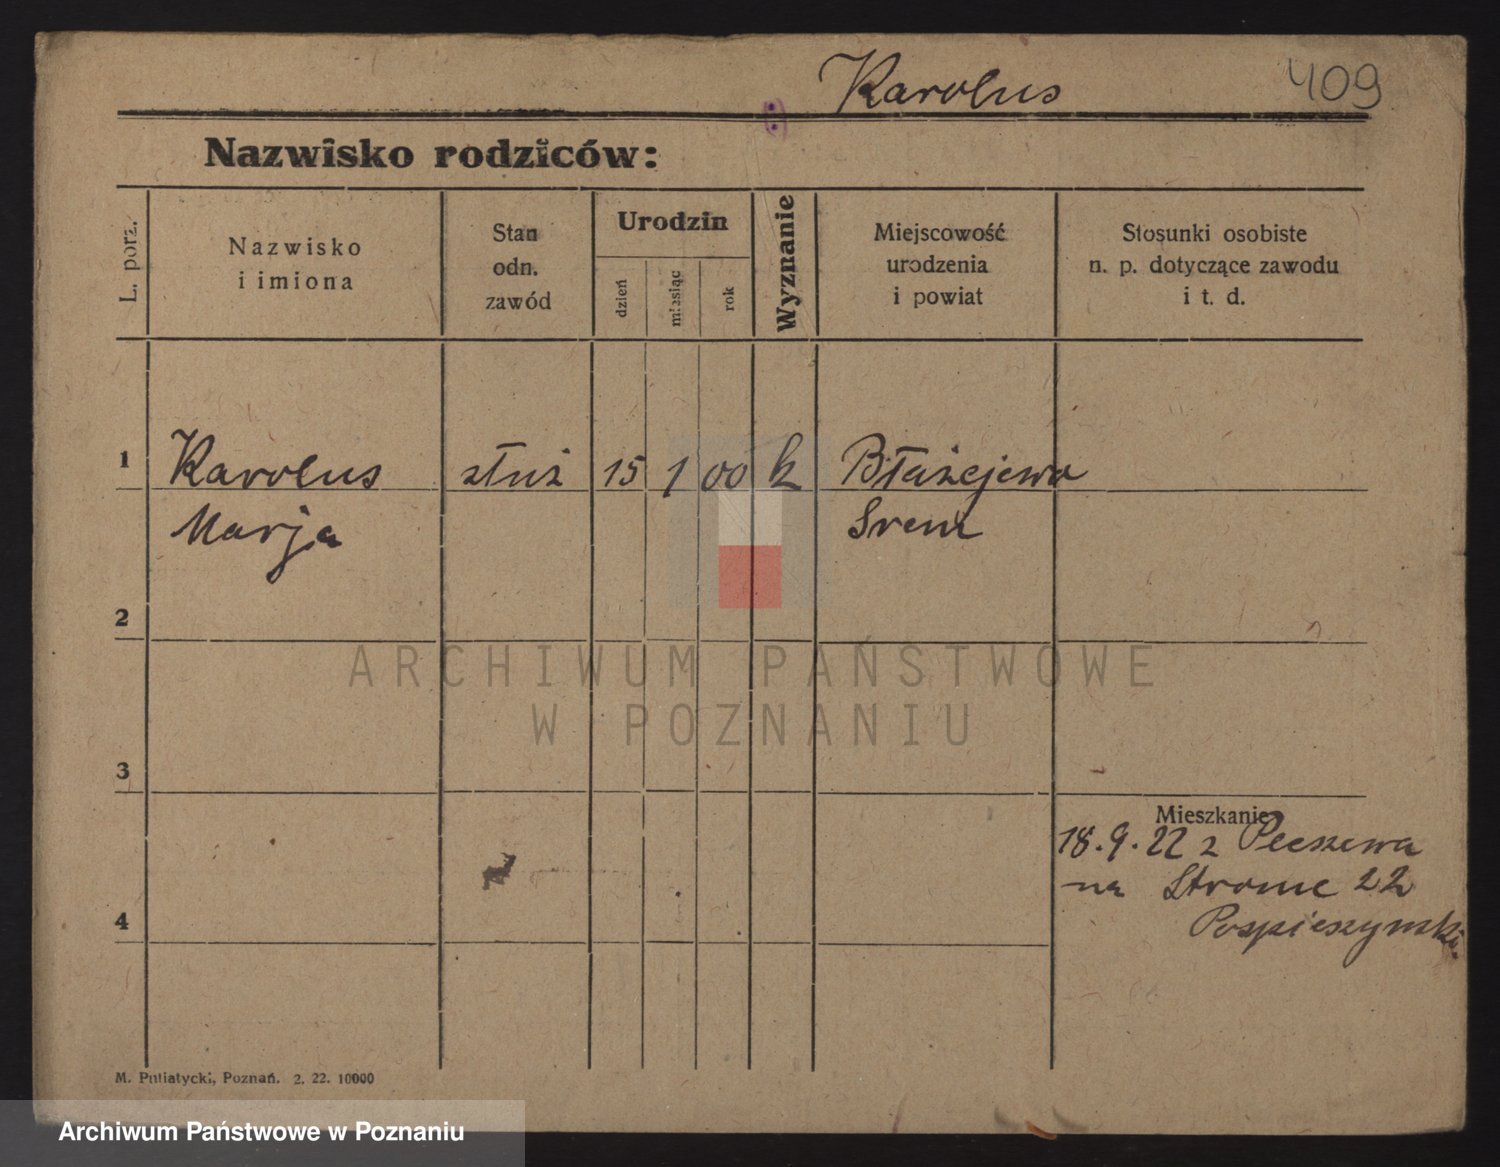 Karolus
409
Nazwisko rodziców:
L. porz.
Nazwisko
i imiona
Stan
odn.
zawód
Urodzin
dzień
miesiąc
rok
Wyznanie
Miejscowość
urodzenia
i powiat
Stosunki osobiste
n. p. dotyczące zawodu
i t. d.
1
Karolus służ 15 1 00 k Błażejewo
Marja Srem
2
3
4
Mieszkanie
18.9.22 z
na Strome 22
M. Putiatycki, Poznań. 2. 22. 10000
ARCHIWUM PAŃSTWOWE
W POZNANIU
Archiwum Państwowe w Poznaniu